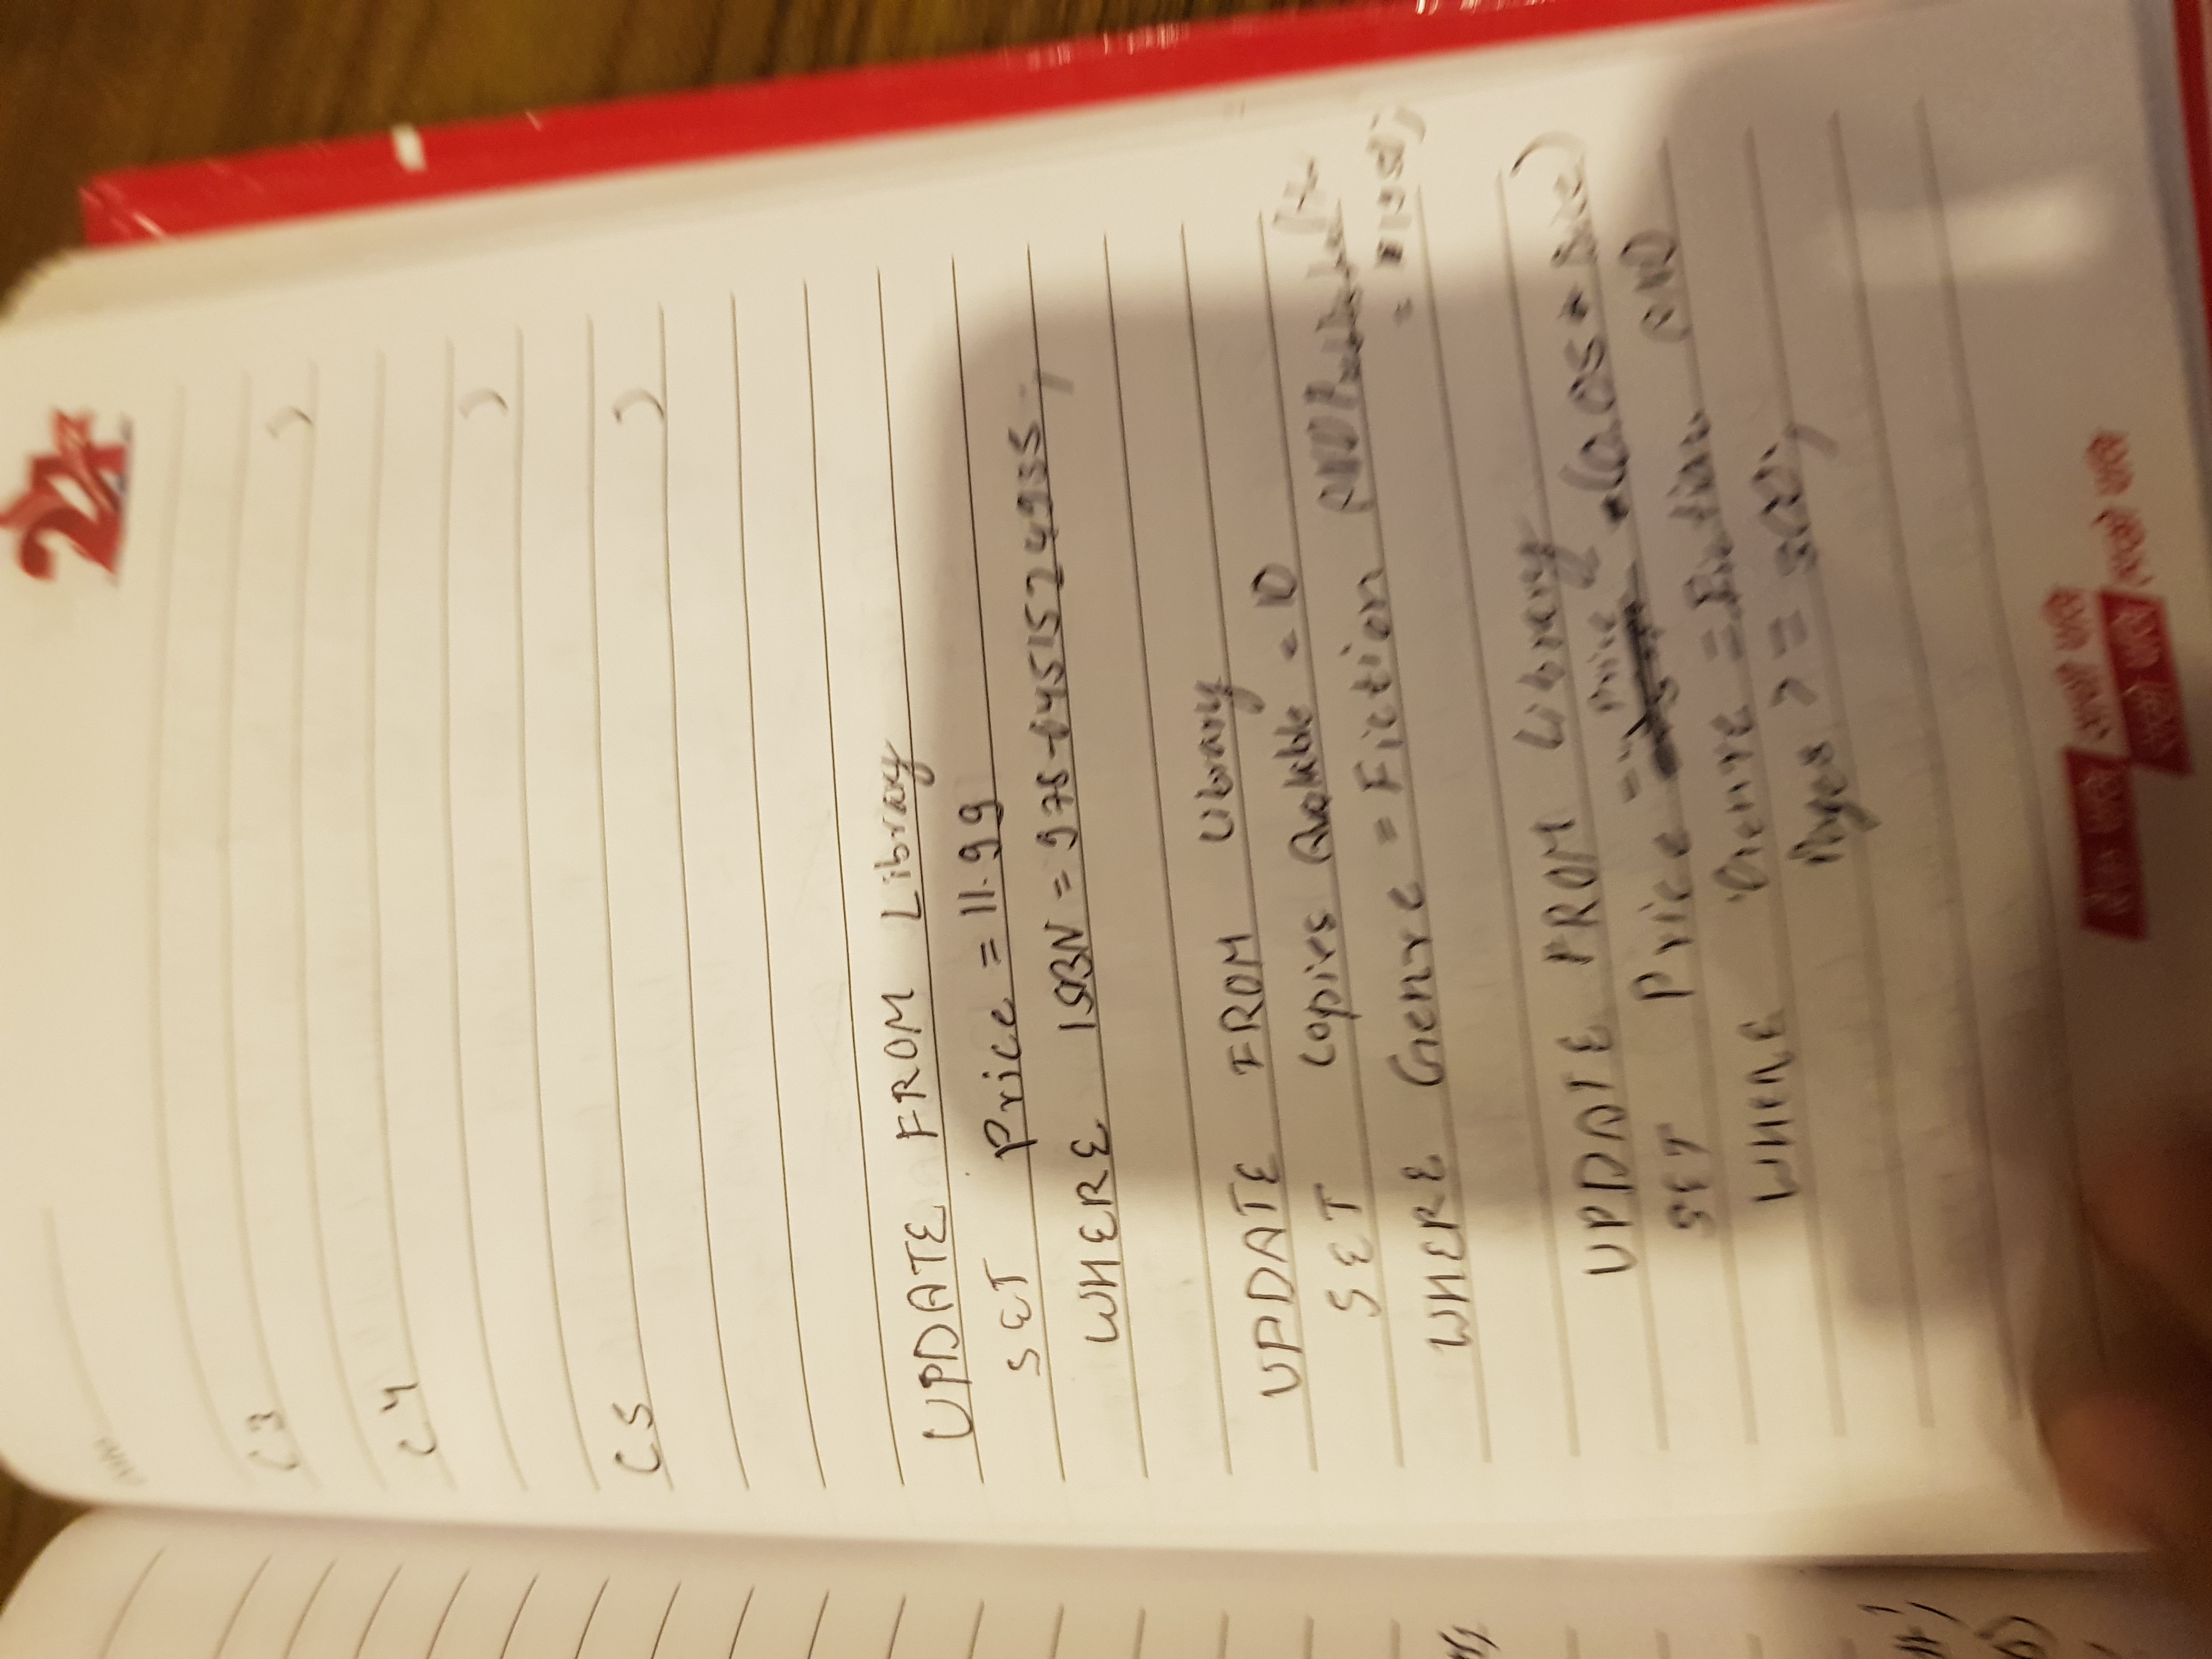 Date
24
(3
)
(4
)
(5
)
UPDATE FROM Library
SET Price = 11.99
WHERE ISBN = 978-0451524935;
UPDATE FROM Library
SET Copies Available = 10
WHERE Genre = Fiction AND
UPDATE FROM Library
SET Price = Price - (0.05 * Price)
WHERE Genre = Fiction AND
Pages >= 300;